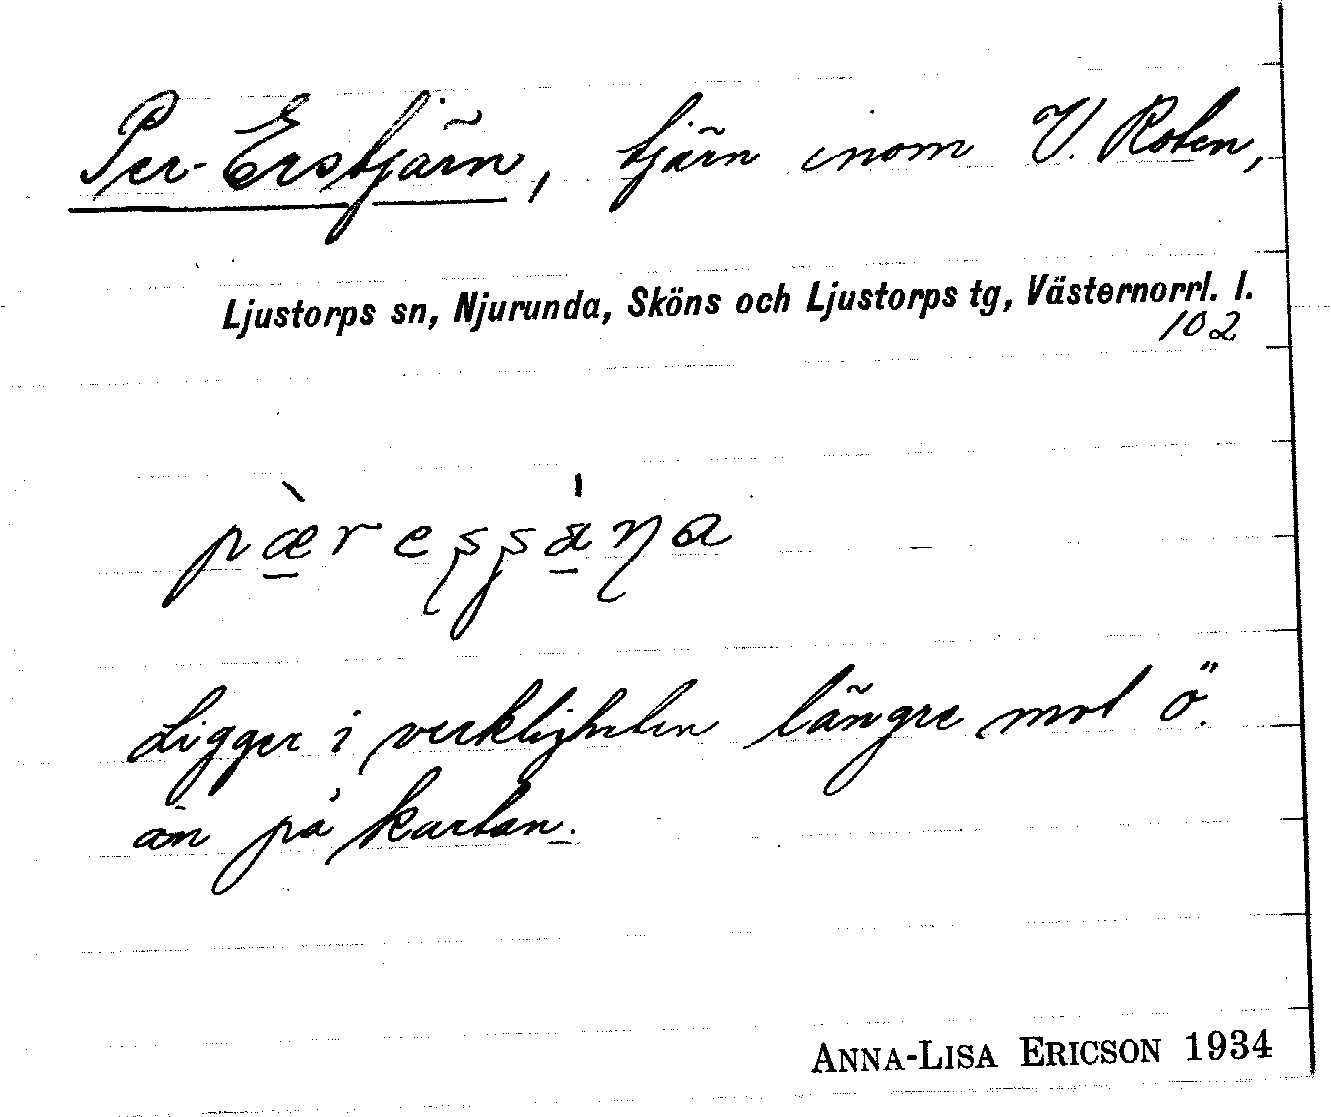 Per-Erstjärn, tjärn inom V. Roten,
Ljustorps sn, Njurunda, Sköns och Ljustorps tg, Västernorrl. l.
102
Ligger i verkligheten längre mot ö.
än på kartan.
ANNA-LISA ERICSON 1934